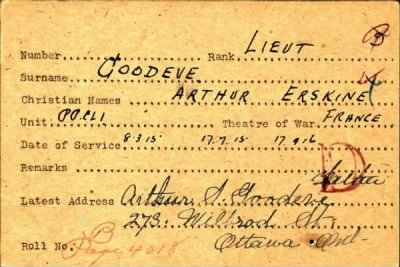 B
Number Rank LIEUT
Surname GOODEVE
Christian Names ARTHUR ERSKINE
Unit P.P.C.L.I. Theatre of War. FRANCE
Date of Service 8-3-15 17-7-15 17-9-16
Remarks D
father
Latest Address Arthur S. Goodeve
273 Wilbrod St.
Roll No. Page 4018 Ottawa Ont-